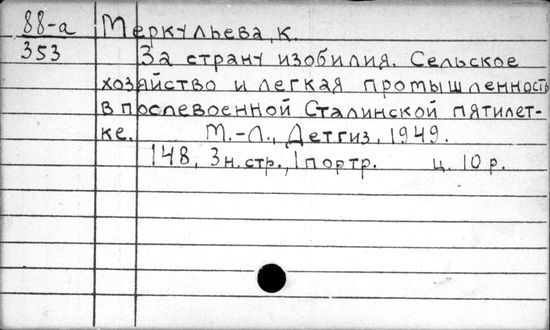 88-а Меркульева, К.
353 За страну изобилия. Сельское
хозяйство и легкая промышленность
в послевоенной Сталинской пятилет-
ке. М.-Л., Детгиз, 1949.
148, 3 н. стр., 1 портр. ц. 10 р.